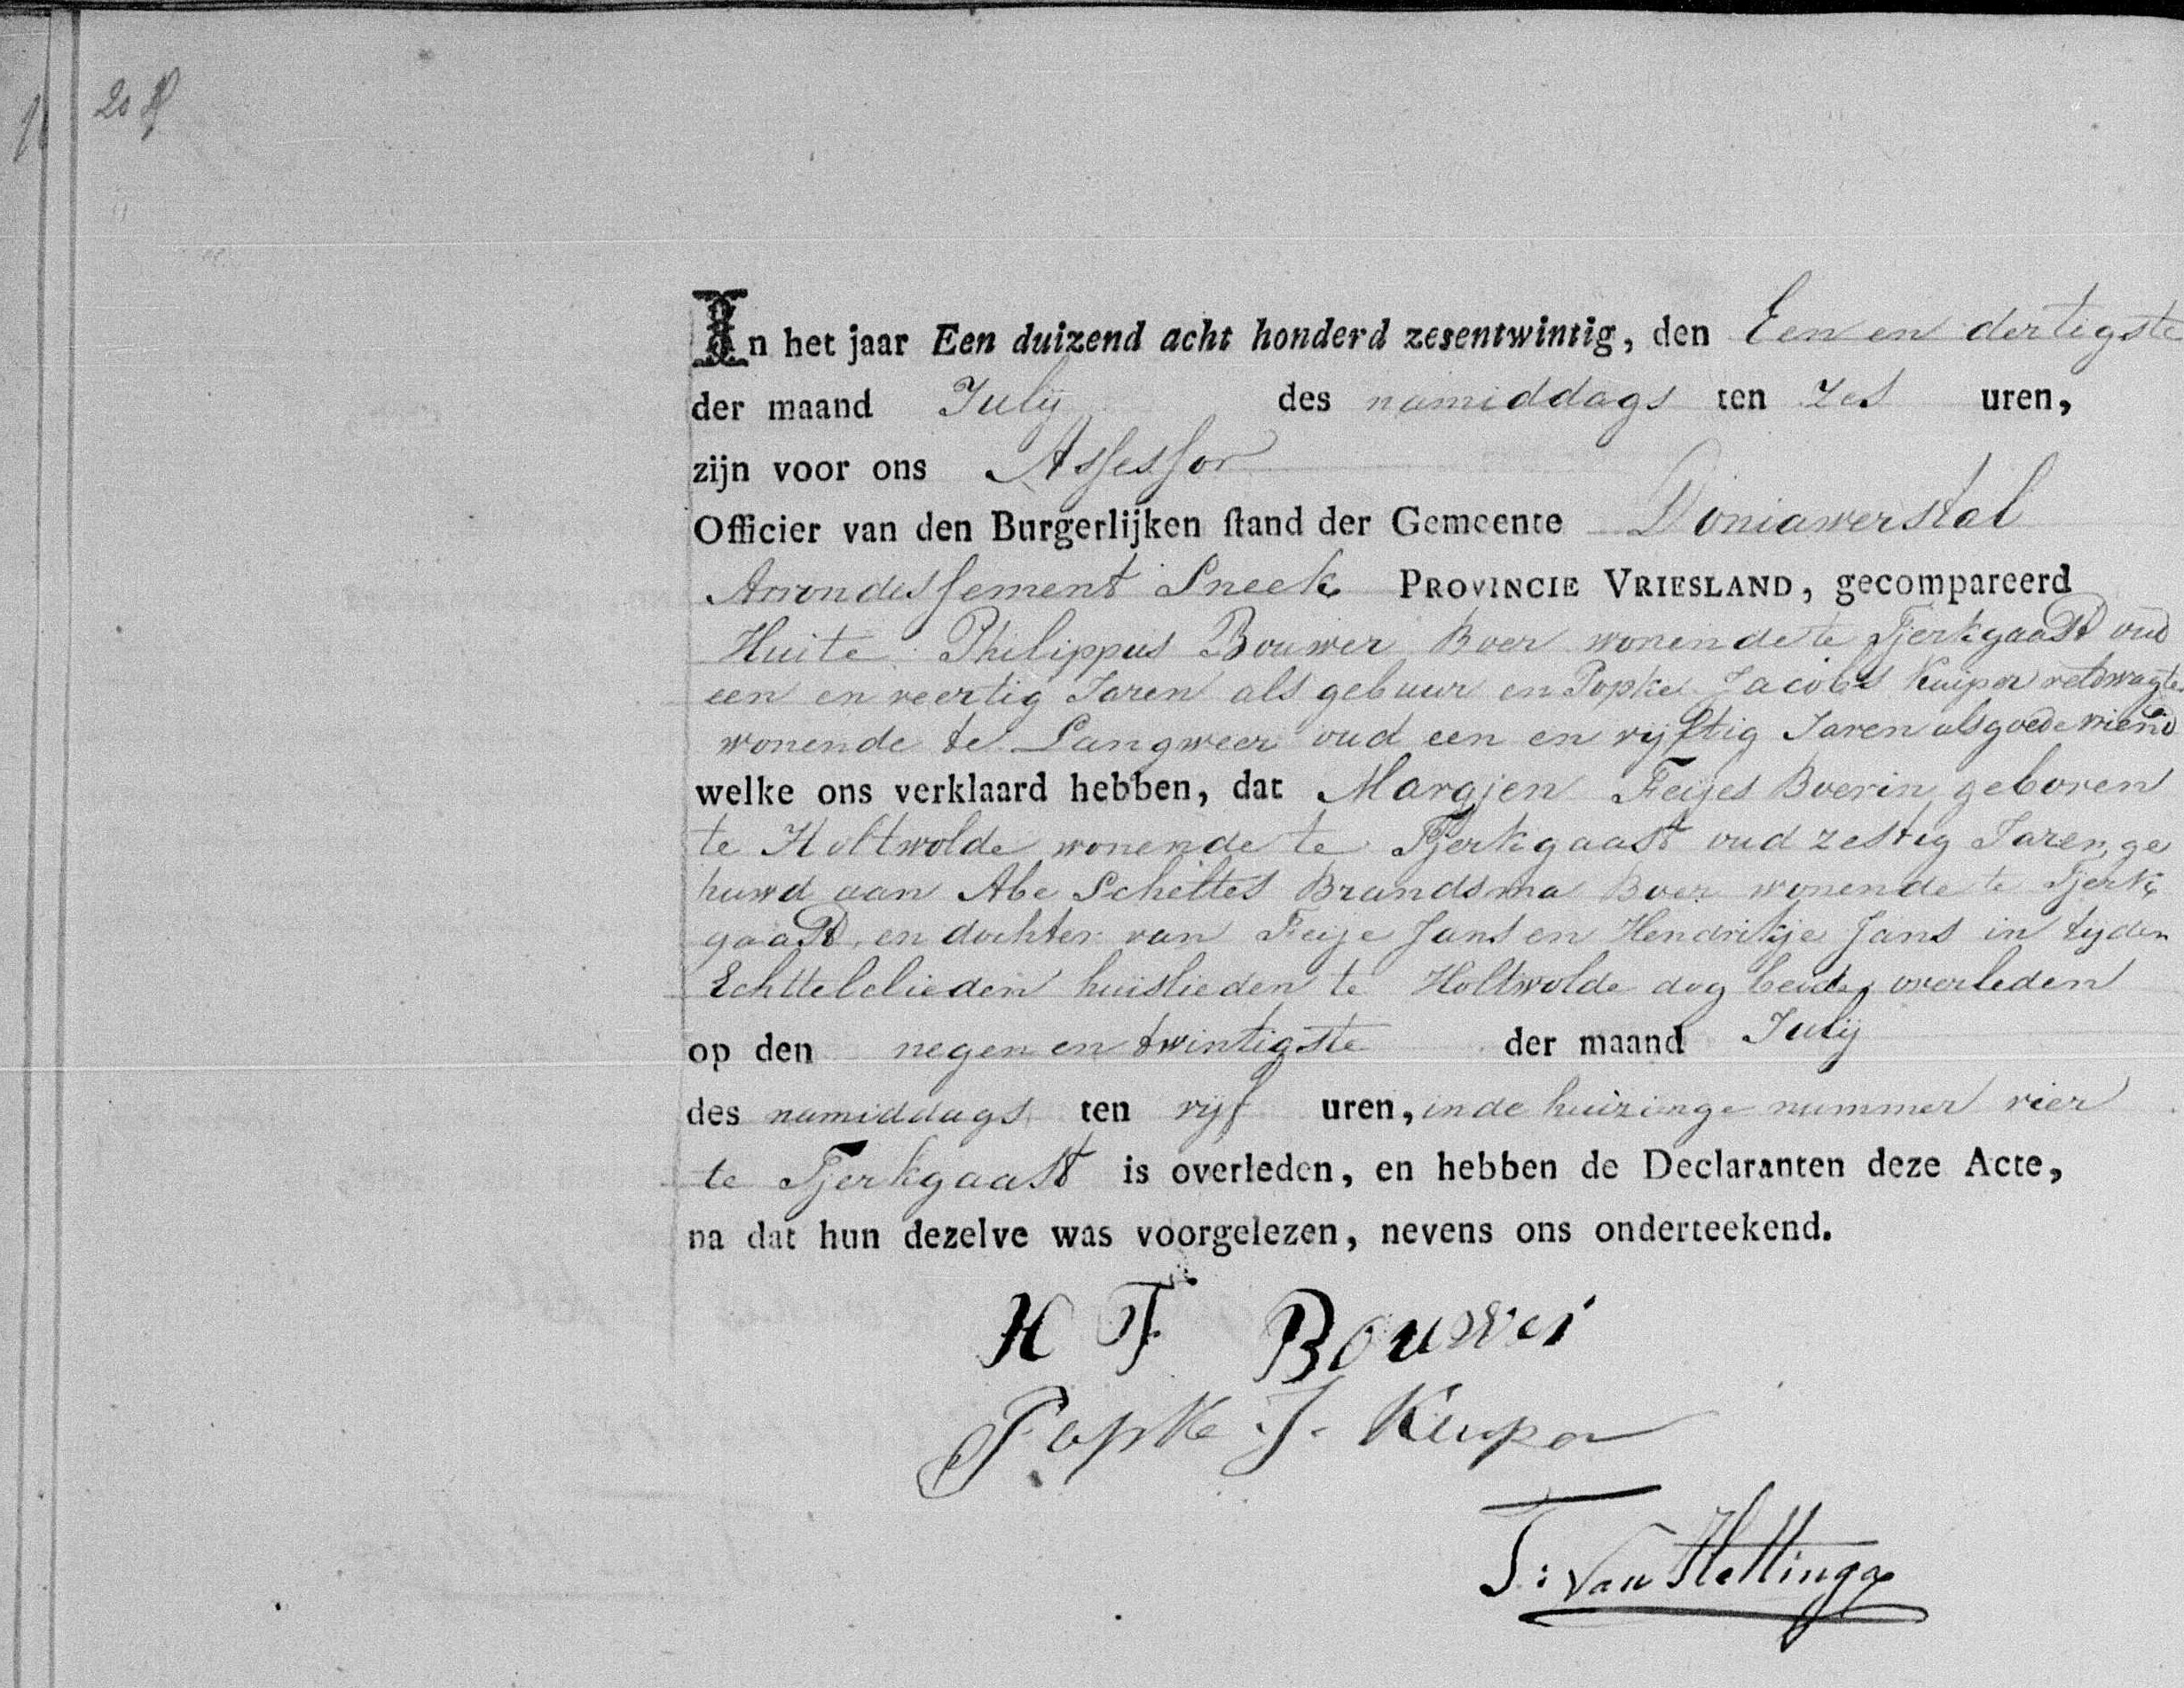 In het jaar Een duizend acht honderd zesentwintig, den Een en dertigste
der maand Julij des namiddags ten zes uren,
zijn voor ons Assessor
Officier van den Burgerlijken stand der Gemeente Doniawerstal
Arrondissement Sneek PROVINCIE VRIESLAND, gecompareerd
Huite Philippus Bouwer Boer wonende te Tjerkgaast oud
een en veertig Jaren als gebuur en Popke Jacobs Kuiper veldwagter
wonende te Langweer oud een en vyftig Jaren als goede vriend
welke ons verklaard hebben, dat Margjen Feijes Boerin geboren
te Holtwolde wonende te Tjerkgaast oud zestig Jaren, ge
huwd aan Abe Scheltes Brandsma Boer wonende te Tjerk
gaast, en dochter van Feije Jans en Hendrikje Jans in tyden
Echttelelieden huislieden te Holtwolde dog beide overleden
op den negen en twintigste der maand Julij
des namiddags ten vijf uren, in de huizinge nummer vier
te Tjerkgaast is overleden, en hebben de Declaranten deze Acte,
na dat hun dezelve was voorgelezen, nevens ons onderteekend.
H F Bouwer
Popke J. Kuiper
T: van Hettinga